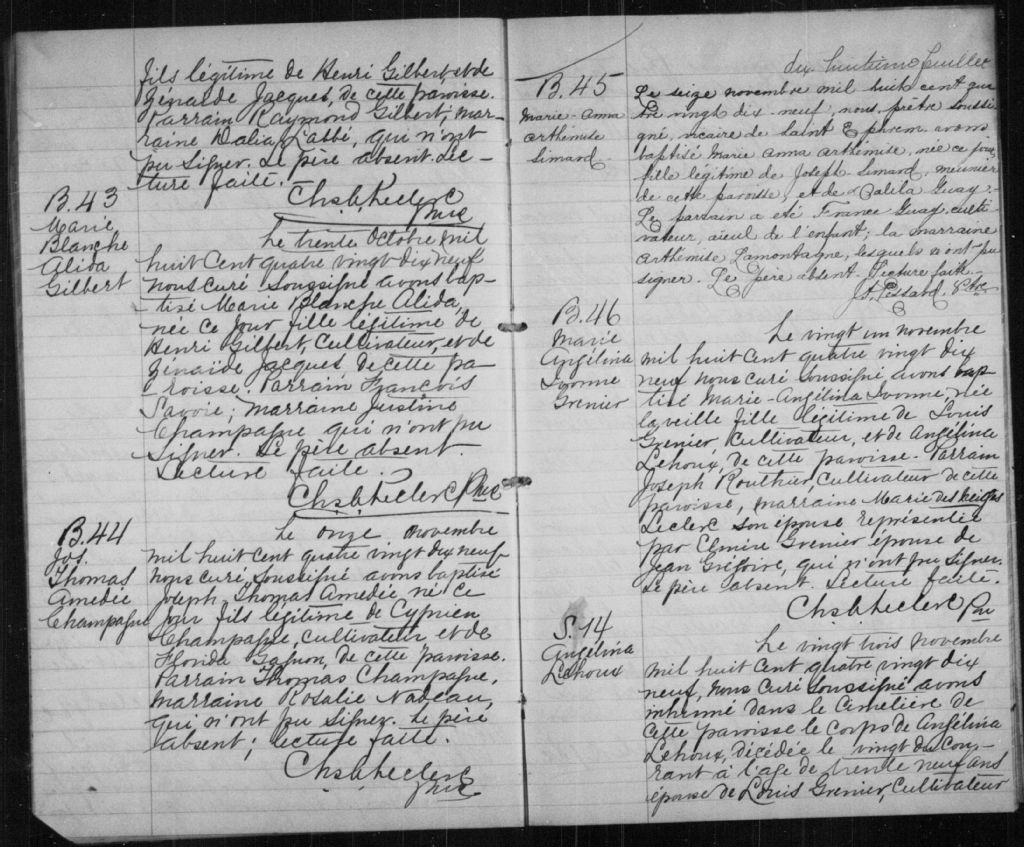 fils légitime de Henri Gilbert et de
Zénaïde Jacques, de cette paroisse.
Parrain Raymond Gilbert, mar-
raine Dalia Labbé, qui n'ont
pu signer. Le père absent. Lec-
ture faite.
Chs. h. Leclerc
Ptre
B.43
Marie
Blanche
Alida
Gilbert
Le trente Octobre mil
huit cent quatre vingt dix neuf
nous curé soussigné avons bap-
tisé Marie Blanche Alida,
née ce jour fille légitime de
Henri Gilbert, cultivateur, et de
Zénaïde Jacques de cette pa-
roisse. Parrain François
Savoie; marraine Justine
Champagne qui n'ont pu
signer. Le père absent.
Lecture faite.
Chs. h. Leclerc Ptre
B.44
Jos.
Thomas
Amedie
Champagne
Le onze novembre
mil huit cent quatre vingt dix neuf
nous curé soussigné avons baptisé
Joseph Thomas Amedie né ce
jour fils légitime de Cyprien
Champagne, cultivateur et de
Florida Gagnon, de cette paroisse.
Parrain Thomas Champagne,
marraine Rosalie Nadeau,
qui n'ont pu signer. Le père
absent; lecture faite.
Chs. h. Leclerc
Ptre
dix huitième feuillet
B.45
Marie-anna
arthémise
Simard
Le seize novembre mil huit cent qua
tre vingt dix neuf, nous, prêtre soussi
gné, vicaire de Saint Ephrem avons
baptisé Marie anna arthémise, née ce jour
fille légitime de Joseph Simard, meunier
de cette paroisse, et de Dalila Guay.
Le parrain a été France Guay, culti
vateur, aïeul de l'enfant; la marraine
arthémise Lamontagne, lesquels n'ont pu
signer. Le père absent. Lecture faite.
Ptre
B.46
Marie
Angélina
Ivonne
Grenier
Le vingt un novembre
mil huit cent quatre vingt dix
neuf nous curé soussigné avons bap
tisé Marie-Angélina Ivonne, née
la veille fille légitime de Louis
Grenier, cultivateur, et de Angélina
Lehoux, de cette paroisse. Parrain
Joseph Routhier, cultivateur de cette
paroisse, marraine Marie des Neiges
Leclerc son épouse représentée
par Elmire Grenier épouse de
Jean Grégoire, qui n'ont pu signer.
Le père absent. Lecture faite.
Chs. h. Leclerc Ptre
S.14
Angélina
Lehoux
Le vingt trois novembre
mil huit cent quatre vingt dix
neuf, nous curé soussigné avons
inhumé dans le cimetière de
cette paroisse le corps de Angélina
Lehoux, décédée le vingt du cou-
rant à l'age de trente neuf ans
épouse de Louis Grenier, cultivateur